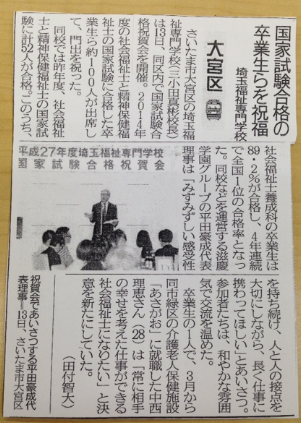 国家試験合格の
卒業生らを祝福
埼玉福祉専門学校
大宮区
さいたま市大宮区の埼玉福
祉専門学校(三小田真彬校長)
は13日、同区内で国家試験合
格祝賀会を開催。2014年
度の社会福祉士と精神保健福
祉士の国家試験に合格した卒
業生ら約100人が出席し
て、門出を祝った。
同校では昨年度、社会福祉
士と精神保健福祉士の国家試
験に計52人が合格。このうち、
社会福祉士養成科の卒業生は
89・2%が合格し、4年連続
で全国1位の合格率となっ
た。同校などを運営する滋慶
学園グループの平田豪成代表
理事は「みずみずしい感受性
を持ち続け、人と人の接点を
大切にしながら、長く仕事に
携わってほしい」とあいさつ。
参加者たちは、和やかな雰囲
気で交流を温めた。
卒業生の1人で、3月から
同市緑区の介護老人保健施設
「あさがお」に就職した中西
理恵さん(28)は「常に相手
の幸せを考えた仕事ができる
社会福祉士になりたい」と決
意を新たにしていた。
(田付智大)
平成27年度埼玉福祉専門学校
国家試験合格祝賀会
祝賀会であいさつする平田豪成代
表理事=13日、さいたま市大宮区